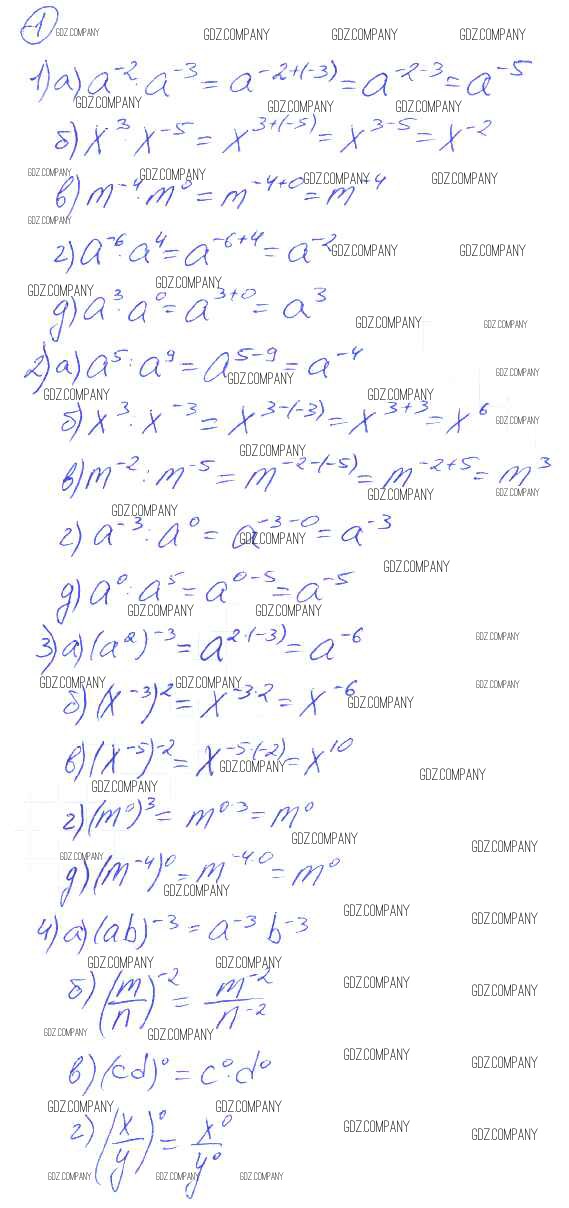 -1 GDZ.COMPANY GDZ.COMPANY GDZ.COMPANY GDZ.COMPANY
1) а) a⁻² · a⁻³ = a⁻²⁺⁽⁻³⁾ = a⁻²⁻³ = a⁻⁵
GDZ.COMPANY GDZ.COMPANY GDZ.COMPANY
б) x³ · x⁻⁵ = x³⁺⁽⁻⁵⁾ = x³⁻⁵ = x⁻²
GDZ.COMPANY GDZ.COMPANY GDZ.COMPANY GDZ.COMPANY
в) m⁻⁴ · m⁰ = m⁻⁴⁺⁰ = m⁻⁴
GDZ.COMPANY
г) a⁻⁶ · a⁴ = a⁻⁶⁺⁴ = a⁻² GDZ.COMPANY GDZ.COMPANY
GDZ.COMPANY GDZ.COMPANY
д) a³ · a⁰ = a³⁺⁰ = a³
GDZ.COMPANY GDZ.COMPANY
2) а) a⁵ : a⁹ = a⁵⁻⁹ = a⁻⁴
GDZ.COMPANY GDZ.COMPANY
GDZ.COMPANY GDZ.COMPANY
б) x³ : x⁻³ = x³⁻⁽⁻³⁾ = x³⁺³ = x⁶ GDZ.COMPANY
GDZ.COMPANY
в) m⁻² : m⁻⁵ = m⁻²⁻⁽⁻⁵⁾ = m⁻²⁺⁵ = m³
GDZ.COMPANY GDZ.COMPANY
GDZ.COMPANY
г) a⁻³ : a⁰ = a⁻³⁻⁰ = a⁻³
GDZ.COMPANY
GDZ.COMPANY
д) a⁰ : a⁵ = a⁰⁻⁵ = a⁻⁵
GDZ.COMPANY GDZ.COMPANY
3) а) (a²)⁻³ = a²˙⁽⁻³⁾ = a⁻⁶ GDZ.COMPANY
GDZ.COMPANY GDZ.COMPANY GDZ.COMPANY
б) (x⁻³)² = x⁻³˙² = x⁻⁶ GDZ.COMPANY
в) (x⁻⁵)⁻² = x⁻⁵˙⁽⁻²⁾ = x¹⁰
GDZ.COMPANY GDZ.COMPANY
GDZ.COMPANY
г) (m⁰)³ = m⁰˙³ = m⁰
GDZ.COMPANY GDZ.COMPANY
GDZ.COMPANY
д) (m⁻⁴)⁰ = m⁻⁴˙⁰ = m⁰
GDZ.COMPANY
GDZ.COMPANY GDZ.COMPANY
4) а) (ab)⁻³ = a⁻³ b⁻³
GDZ.COMPANY GDZ.COMPANY
б) (m/n)⁻² = m⁻²/n⁻² GDZ.COMPANY GDZ.COMPANY
GDZ.COMPANY GDZ.COMPANY
в) (cd)⁰ = c⁰ · d⁰ GDZ.COMPANY GDZ.COMPANY
GDZ.COMPANY GDZ.COMPANY
г) (x/y)⁰ = x⁰/y⁰ GDZ.COMPANY GDZ.COMPANY
GDZ.COMPANY GDZ.COMPANY GDZ.COMPANY